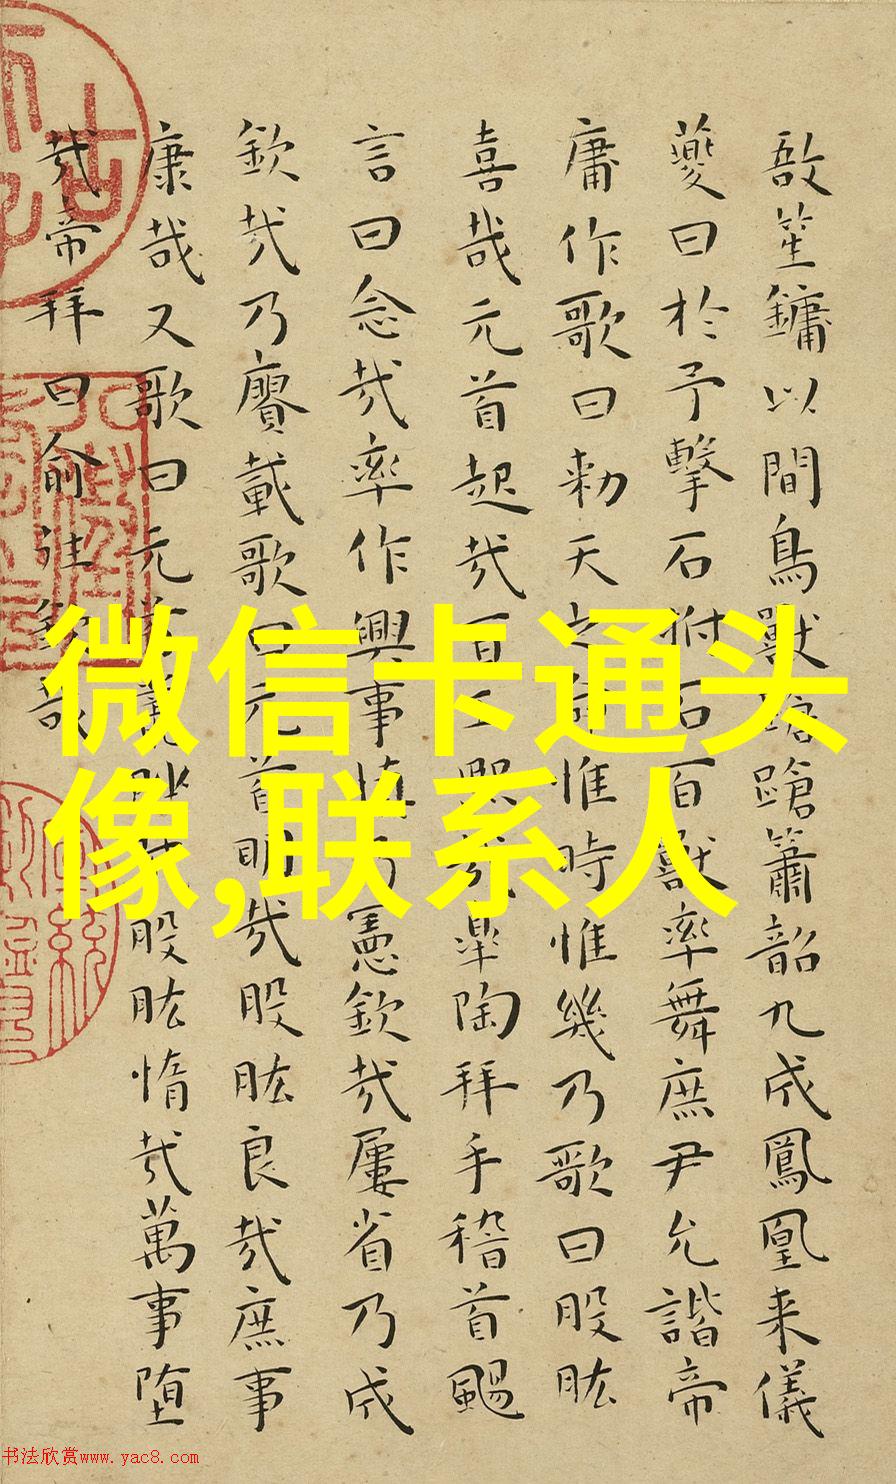 敔笙鏞以間鳥獸蹌簫韶九成鳳凰来儀
夔曰於予擊石拊石百獸率舞庶尹允諧帝
庸作歌曰勑天之命惟時惟幾乃歌曰股肱
喜哉元首起哉百工熙哉皐陶拜手稽首颺
言曰念哉率作興事慎乃憲欽哉屢省乃成
欽哉乃賡載歌曰元首明哉股肱良哉庶事
康哉又歌曰元首叢脞哉股肱惰哉萬事堕
哉帝拜曰俞往欽哉
微信卡通头
像,联系人
书法欣赏www.yac8.com